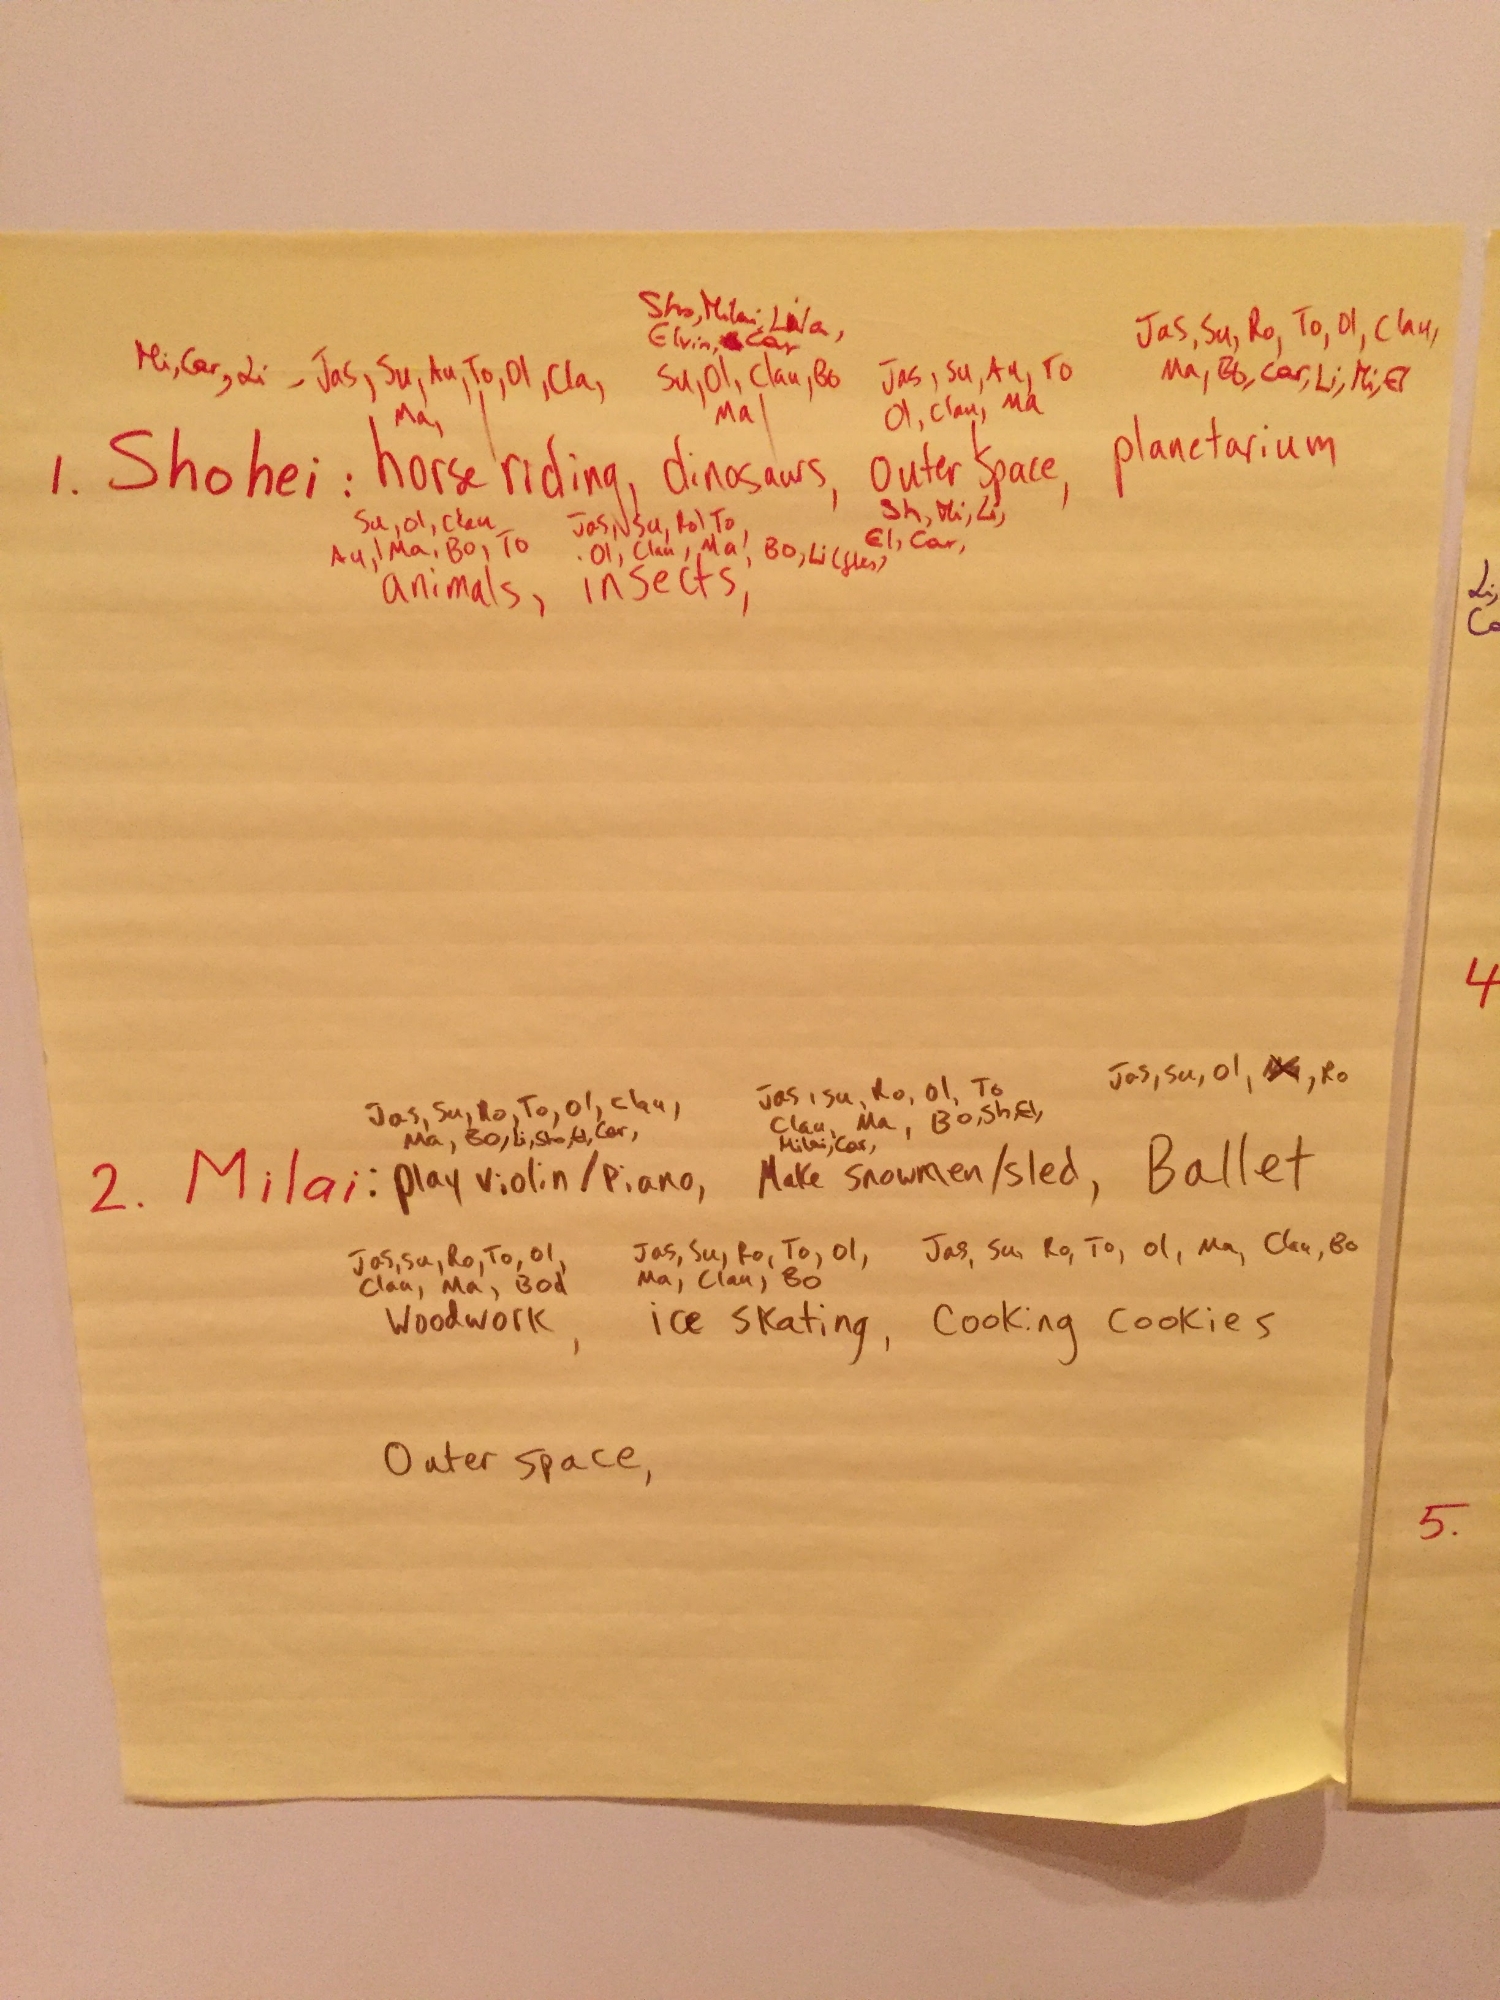 Sho, Milai, Liva,
Elvin, Car
Mi, Car, Li - Jas, Su, Au, To, Ol, Cla,
Ma,
Su, Ol, Clau, Bo
Ma
Jas, Su, Au, To
Ol, Clau, Ma
Jas, Su, Ro, To, Ol, Clau,
Ma, Bo, Car, Li, Mi, El
1. Shohei: horse riding, dinosaurs, Outer space, planetarium
Su, Ol, Clau
Au, Ma, Bo, To
Jas, Su, Ro, To,
Ol, Clau, Ma, Bo, Li
Sh, Mi, Li,
El, Car,
animals, insects,
Li,
4
Jas, Su, Ro, To, Ol, Clau,
Ma, Bo, Li, Sho, El, Car,
Jas, Su, Ro, Ol, To
Clau, Ma, Bo, Sh, El,
Milai, Car,
Jas, Su, Ol, Ro
2. Milai: play violin/Piano, Make snowmen/sled, Ballet
Jas, Su, Ro, To, Ol,
Clau, Ma, Bod
Jas, Su, Ro, To, Ol,
Ma, Clau, Bo
Jas, Su, Ro, To, Ol, Ma, Clau, Bo
Woodwork, ice skating, Cooking cookies
Outer space,
5.